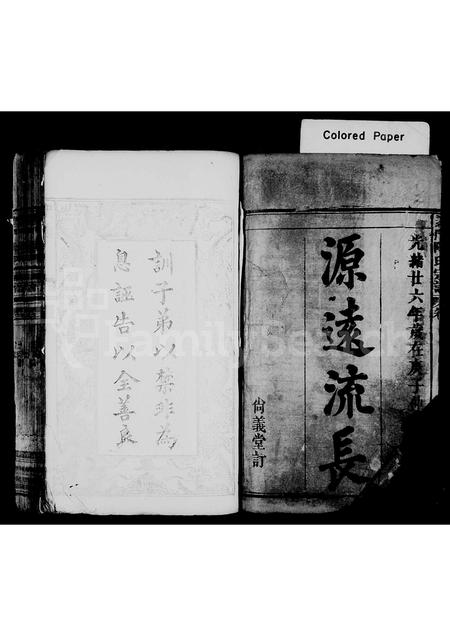 Colored Paper
光緒廿六年歲在庚子
源遠流長
尚義堂訂
訓子弟以禁非為
息誣告以全善良
FamilySearch